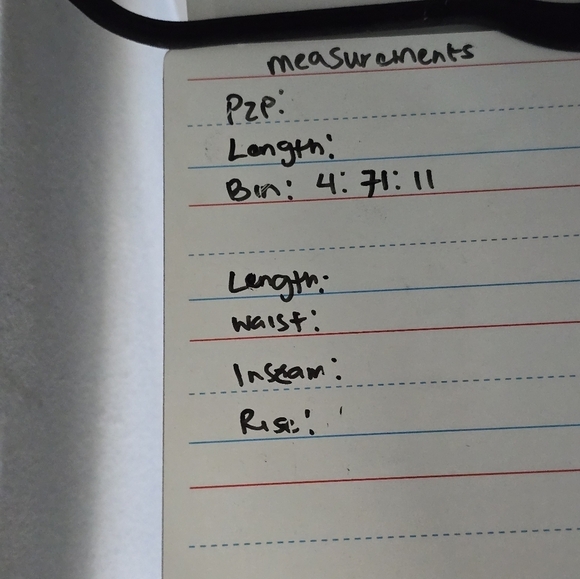 measurements
P2P:
Length:
Bin: 4: 71: 11
Length:
Waist:
Inseam:
Rise: